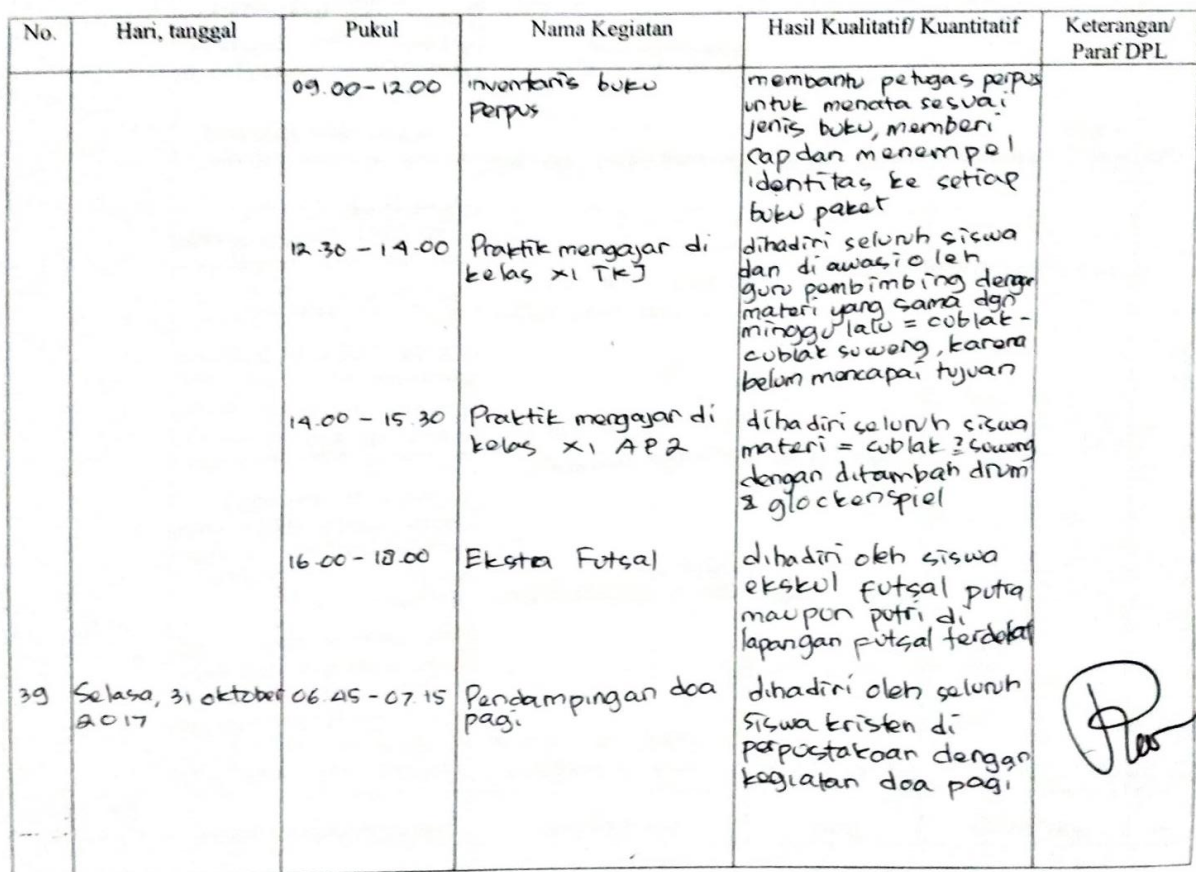 No. Hari, tanggal Pukul Nama Kegiatan Hasil Kualitatif/ Kuantitatif Keterangan/
Paraf DPL
09.00 - 12.00 inventaris buku membantu petugas perpus
Perpus untuk menata sesuai
jenis buku, memberi
cap dan menempel
identitas ke setiap
buku paket
12.30 - 14.00 Praktik mengajar di dihadiri seluruh siswa
kelas XI TKJ dan diawasi oleh
guru pembimbing dengan
materi yang sama dgn
minggu lalu = cublak -
cublak suweng, karena
belum mencapai tujuan
14.00 - 15.30 Praktik mengajar di dihadiri seluruh siswa
kelas XI AP2 materi = cublak 2 suweng
dengan ditambah drum
& glockenspiel
16.00 - 18.00 Ekstra Futsal dihadiri oleh siswa
ekskul futsal putra
maupun putri di
lapangan futsal terdekat
39 Selasa, 31 oktober 06.45 - 07.15 Pendampingan doa dihadiri oleh seluruh
2017 pagi siswa kristen di
perpustakaan dengan
kegiatan doa pagi